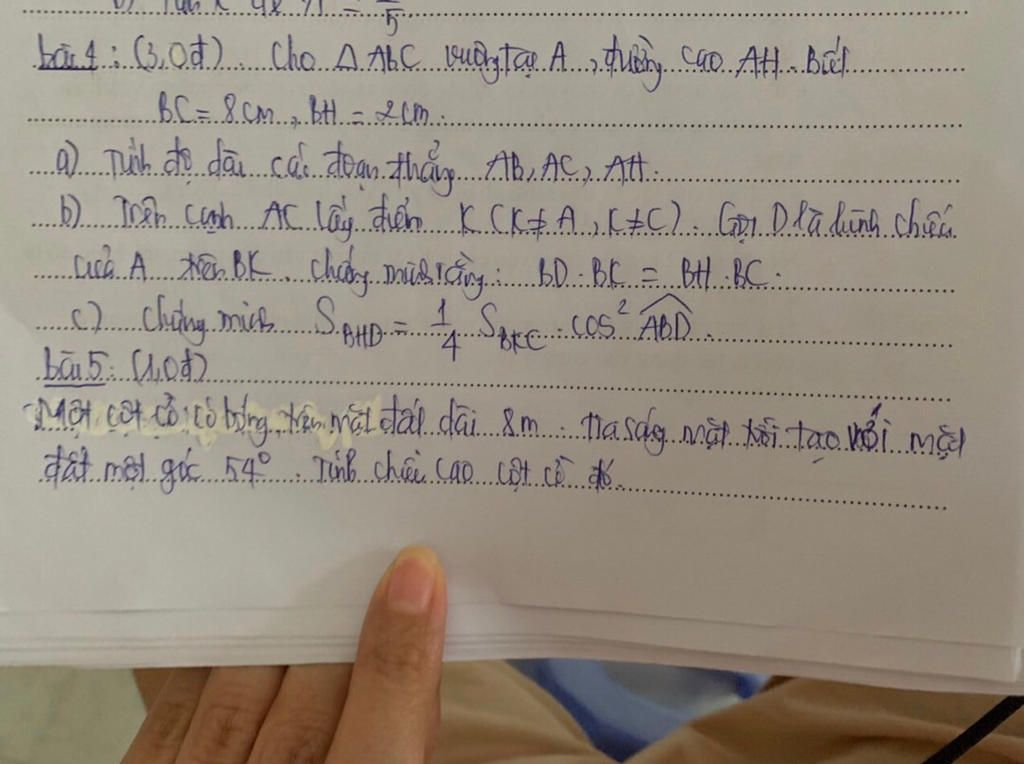 5
bài 4: (3,0đ). Cho △ ABC vuông tại A, đường cao AH. Biết
BC = 8cm, BH = 2cm.
a) Tính độ dài các đoạn thẳng AB, AC, AH.
b) Trên cạnh AC lấy điểm K (K ≠ A, K ≠ C). Gọi D là hình chiếu
của A trên BK. Chứng minh rằng: BD . BK = BH . BC.
c) Chứng minh S_BHD = 1/4 S_BKC . cos² ABD.
bài 5: (1,0đ)
Một cột cờ có bóng trên mặt đất dài 8m. Tia sáng mặt trời tạo với mặt
đất một góc 54°. Tính chiều cao cột cờ đó.